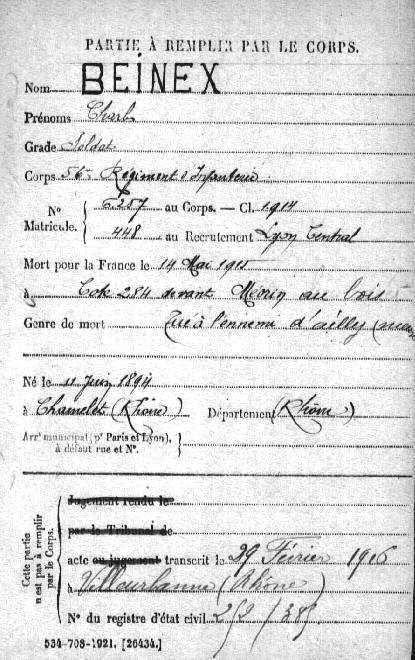 PARTIE À REMPLIR PAR LE CORPS.
Nom BEINEX
Prénoms Charles
Grade Soldat
Corps 56e Régiment d'Infanterie
N° Matricule. { 5257 au Corps. — Cl. 1914
448 au Recrutement Lyon Central
Mort pour la France le 14 Mai 1915
à Cote 284 devant au bois
Genre de mort Tué à l'ennemi d'ailly
Né le 11 Juin 1894
à Chamelet (Rhône) Département (Rhône)
Arrt municipal (pr Paris et Lyon), à défaut rue et N°. }
Cette partie n'est pas à remplir par le Corps.
Jugement rendu le
par le Tribunal de
acte ou jugement transcrit le 29 Février 1916
à Villeurbanne (Rhône)
N° du registre d'état civil
534-708-1921. [26434.]